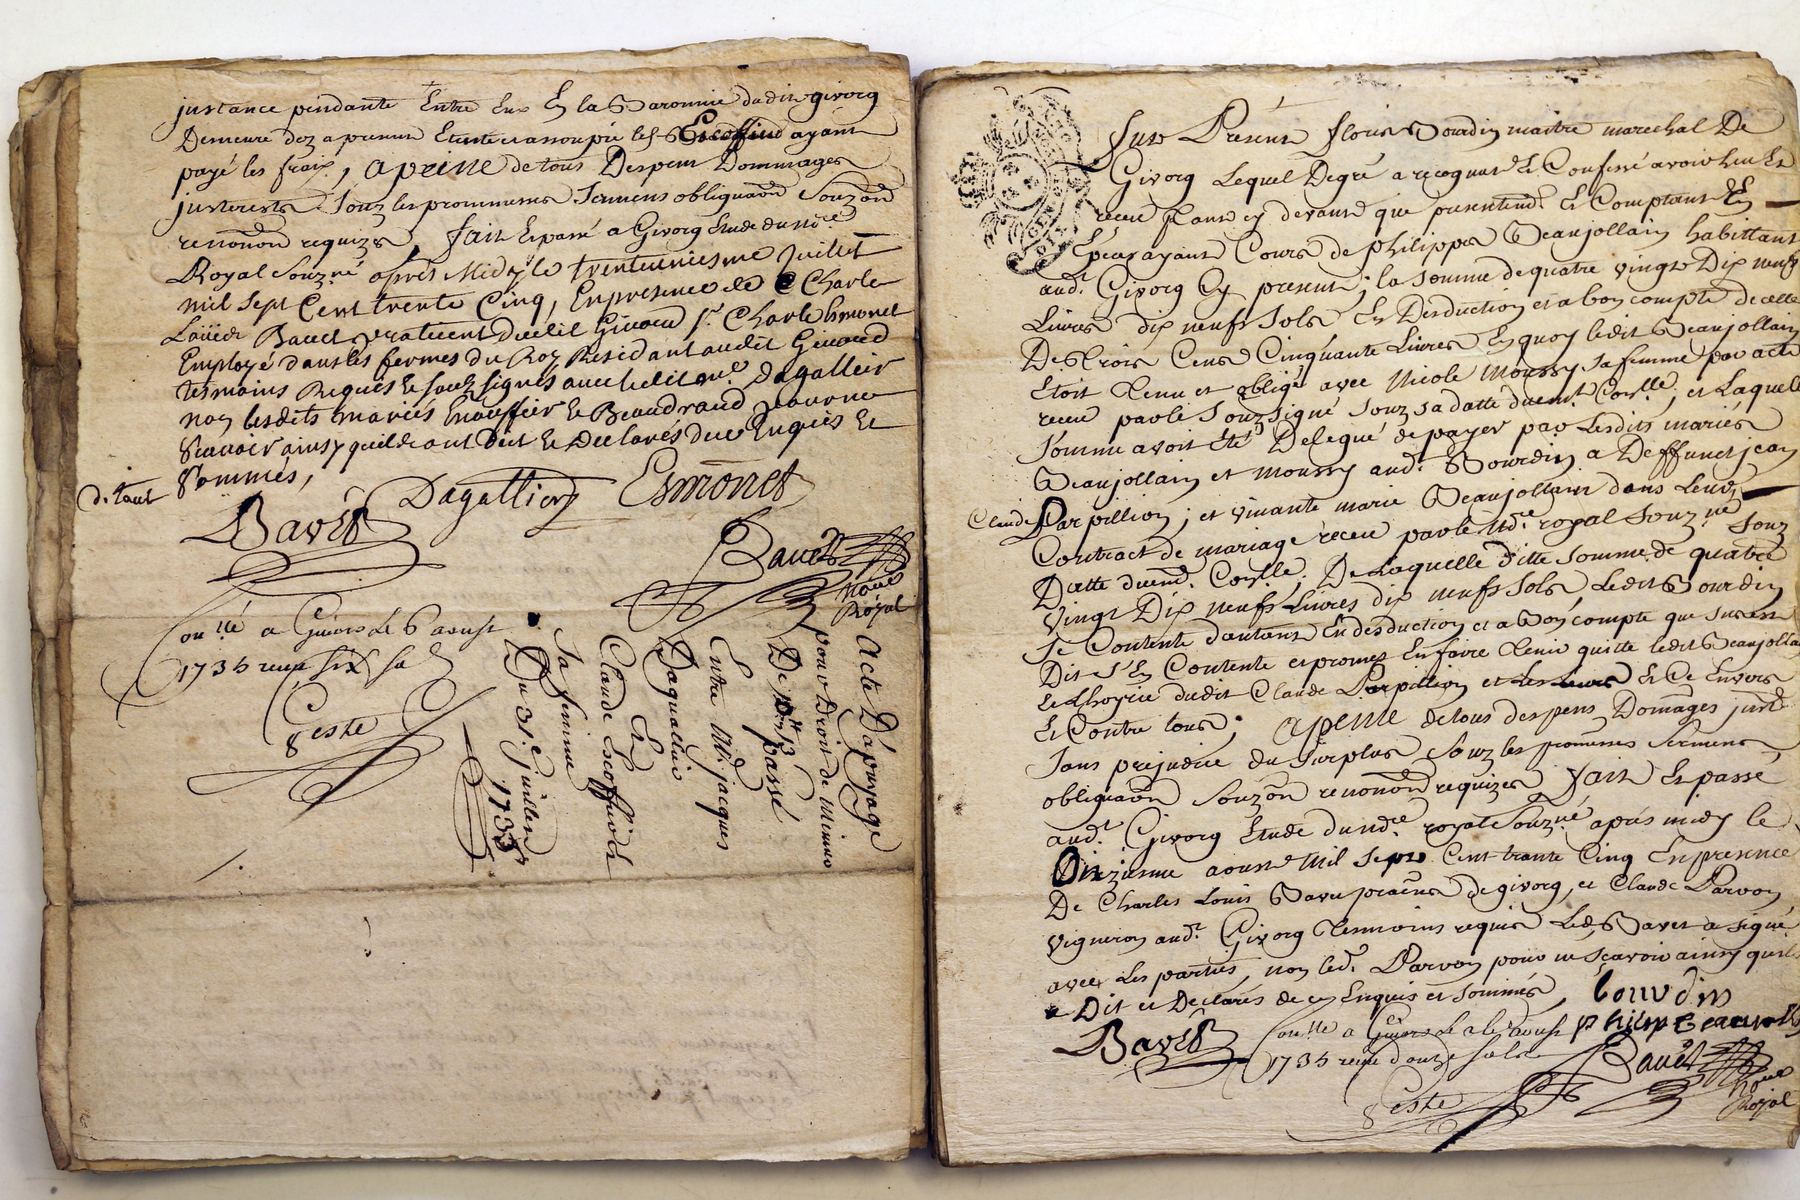 jnstance pendante Entre Eux En la Baronnie dudit givorg
Demeure dez a present Eteinte et assoupie les Escoffier ayant
payé les frais, a peine de tous Despens Dommages
jnterests Souz les promesses Sermens obliguaon Souzon
renonon requizes, fait Et passé a Givorg Etude du no.re
Royal Souz.né aprés Midy le trente unieme Juillet
mil sept Cent trente Cinq, En presence de Charle
Loüis Bauet praticient dudit Giuord s.r Charle Esmonet
Employé dans les fermes du Roy Residant audit Giuord
tesmoins Requis et souz signés auec ledit Dagallier
non lesdits mariés Escoffier et Beaudrand pour ne
scauoir ainsy quils ont Dit et Declarés de ce Enquis et
Sommés,
Bavet Dagallier Esmonet
Bauet
No.re
Royal
a Giuors le 6 aoust
1735 receu six sols
Geste
Acte D'apuyage
pour Droit de Minutte
passé
Entre M. jacques
Dagallier
Et
Claude Escoffier et
Sa femme
Du 31.e juillet
1735
Fust Présent fleuris Bourdin maitre marechal De
Givorg Lequel Degré a recognut Et Confessé avoir heu Et
receu tant cy devant que presentem.t Et Comptant En
Espéces ayant Cours de philippe Beaujollain habittant
aud.t Givorg Cy present; la somme de quatre vingt Dix neuf
Livres dix neufs Sols En Desduction et a bon compte de celle
De trois Cens Cinquante Livres En quoy ledit Beaujollain
Etoit Tenu et obligé avec Nicole Moussy sa femme par acte
receu par le Souzsigné Souz sa datte duem.t Con.lle; et Laquelle
Somme avoit été Deleguée de payer par Lesdits mariés
Beaujollain et moussy aud.t Bourdin a Deffunct jean
Claude Parpillion; et vivante marie Beaujollain dans Leur
Contract de mariage receu par le No.re royal Souz.né Souz
Datte duem.t Con.lle; De Laquelle ditte somme de quatre
vingt Dix neufs Livres dix neufs Sols Ledit Bourdin
Se Contente d'autant En desduction et a Bon compte que Sus est
Dit S'En Contente et promet En faire Tenir quitte ledit Beaujollain
Et Lhoyrie dudit Claude Parpillion et Les Leurs Et Ce Envers
Et Contre tous; a peine de tous despens Domages jnts
Sans prejudice du Surplus Souz les promesses Sermens
obliguaon Souzon renonon requizes fait Et passé
aud.t Givorg Etude du no.re royal Souz.né aprés midy le
Dixzieme aoust Mil Sept Cent trente Cinq En presence
De Charles Louis Bavet praticien de givorg, et Claude Parvon
vigneron aud.t Givorg Tesmoins requis Led. Bavet a signé
avec Les parties, non led.t Parvon pour ne Scavoir ainsy quils
Dit et Declarés de ce Enquis et Sommés,
bourdin
Bavet
a Giuors le
aoust
1735 receu douze sols
Geste
Bauet
No.re
Royal